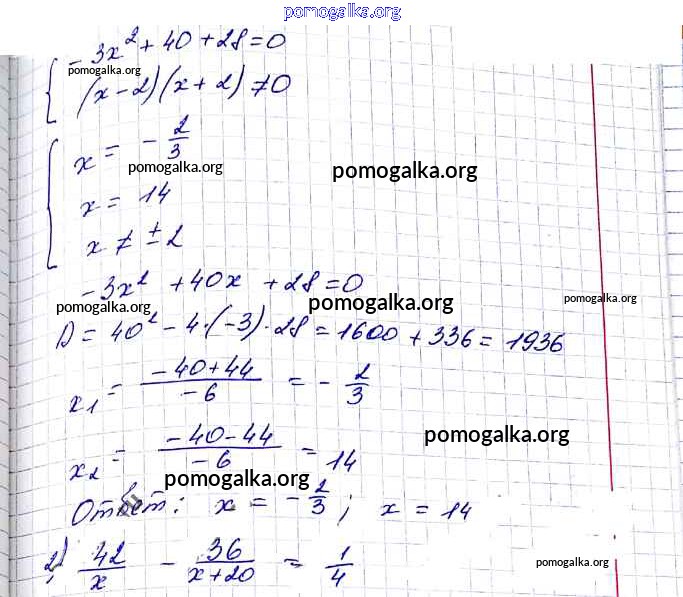 pomogalka.org
-3x² + 40 + 28 = 0
pomogalka.org
(x-2)(x+2) ≠ 0
x = -2/3
pomogalka.org pomogalka.org
x = 14
x ≠ ±2
-3x² + 40x + 28 = 0
pomogalka.org pomogalka.org pomogalka.org
D = 40² - 4·(-3)·28 = 1600 + 336 = 1936
x₁ = (-40+44)/(-6) = -2/3
pomogalka.org
x₂ = (-40-44)/(-6) = 14
pomogalka.org
Ответ: x = -2/3; x = 14
2) 42/x - 36/(x+20) = 1/4
pomogalka.org